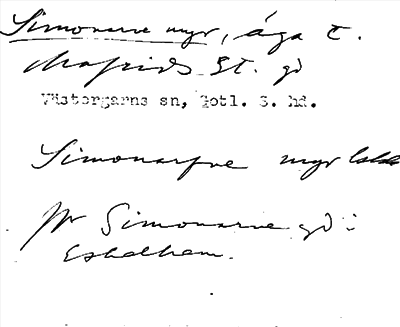 Simonarve myr, äga t.
Mafrids St. gd
Västergarns sn, Gotl. S. hd.
Simonarfve myr
Jfr Simonarve gd i
Eskelhem.